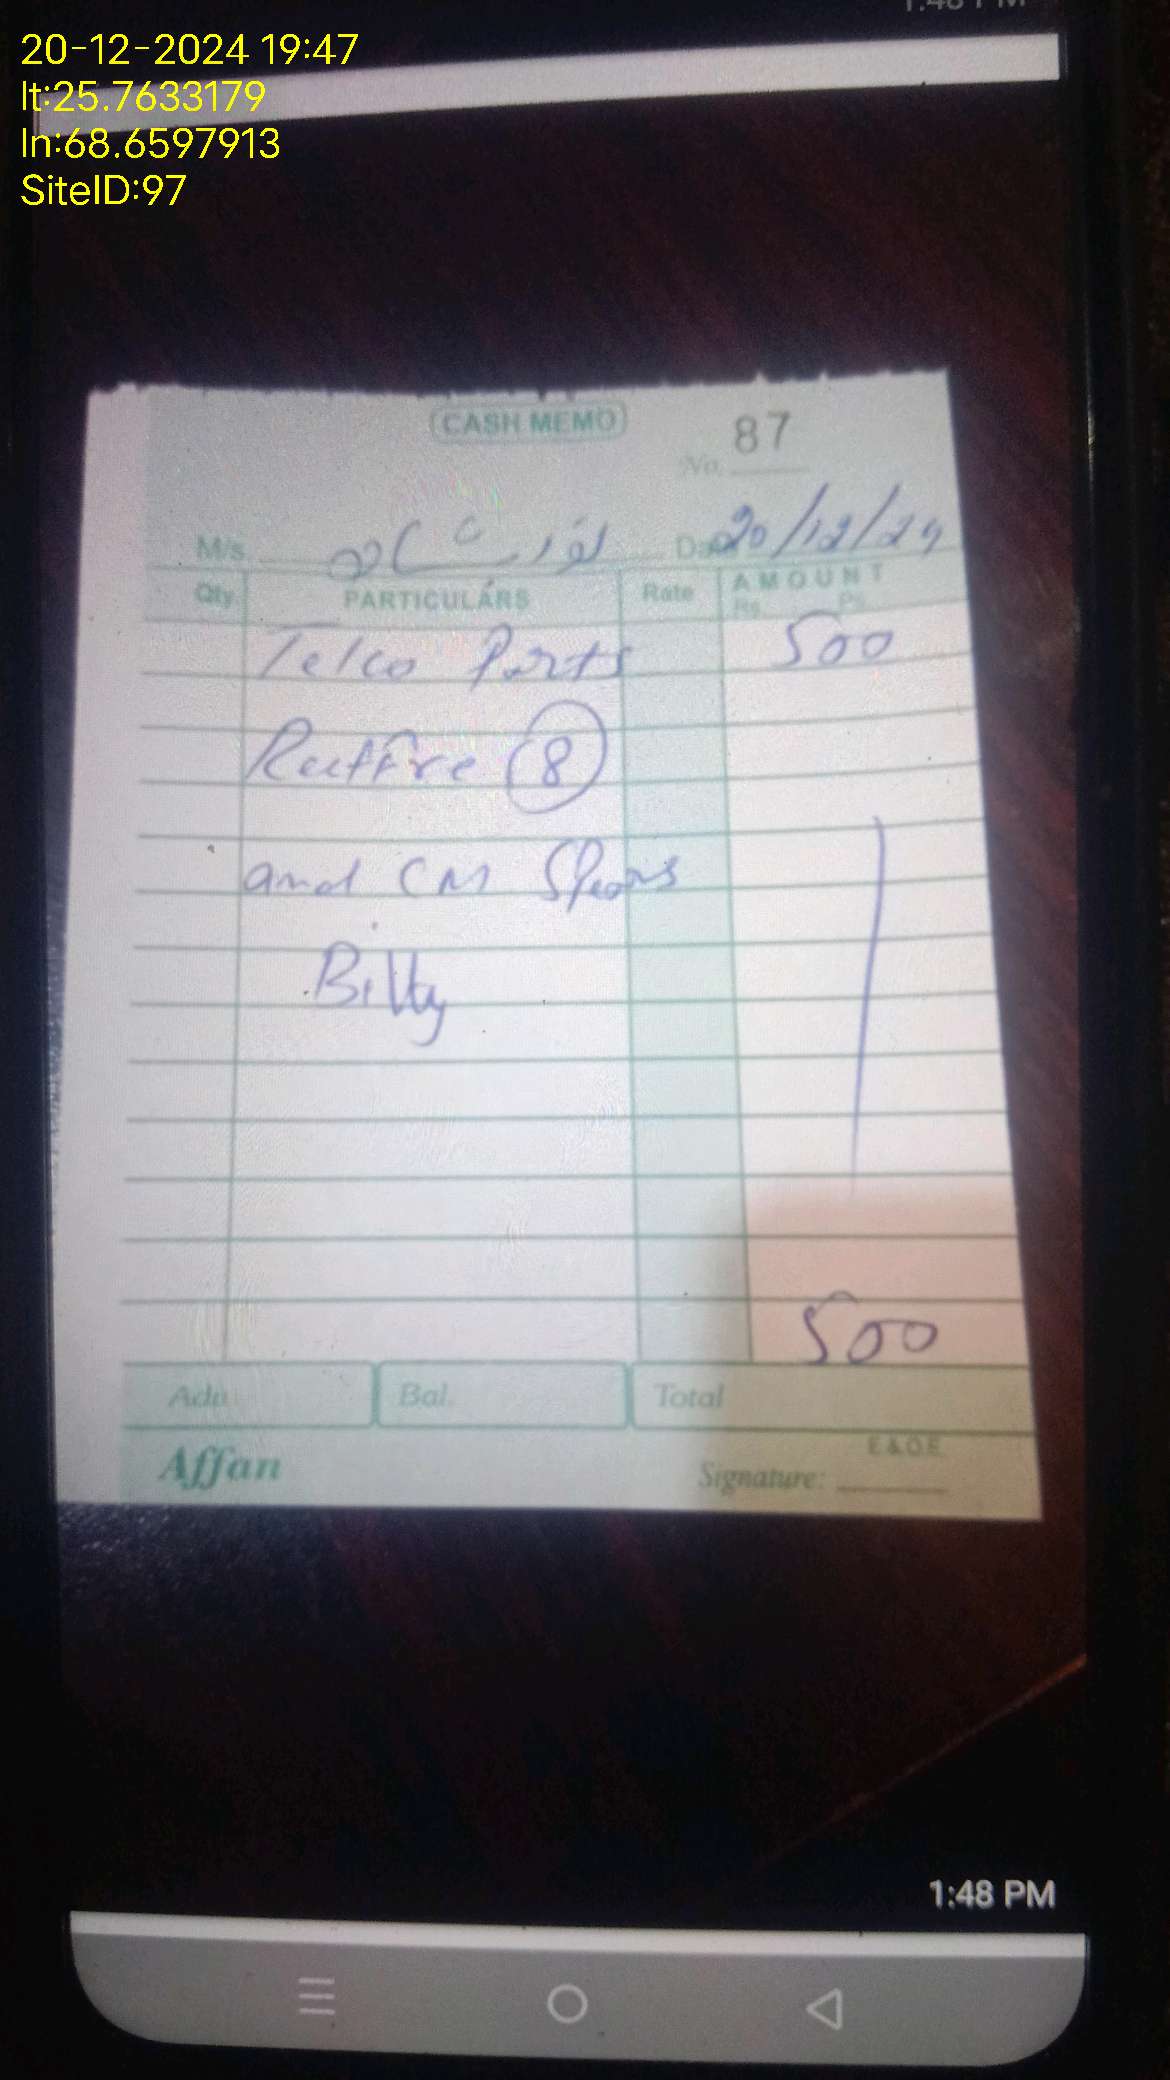 1:48 PM
20-12-2024 19:47
lt:25.7633179
ln:68.6597913
SiteID:97
CASH MEMO
No. 87
M/s Date 20/12/24
Qty. PARTICULARS Rate AMOUNT
Rs. Ps.
Telco Parts 500
8
and CM Spears
Billty
500
Adv. Bal. Total
E.&.O.E.
Affan Signature:
1:48 PM